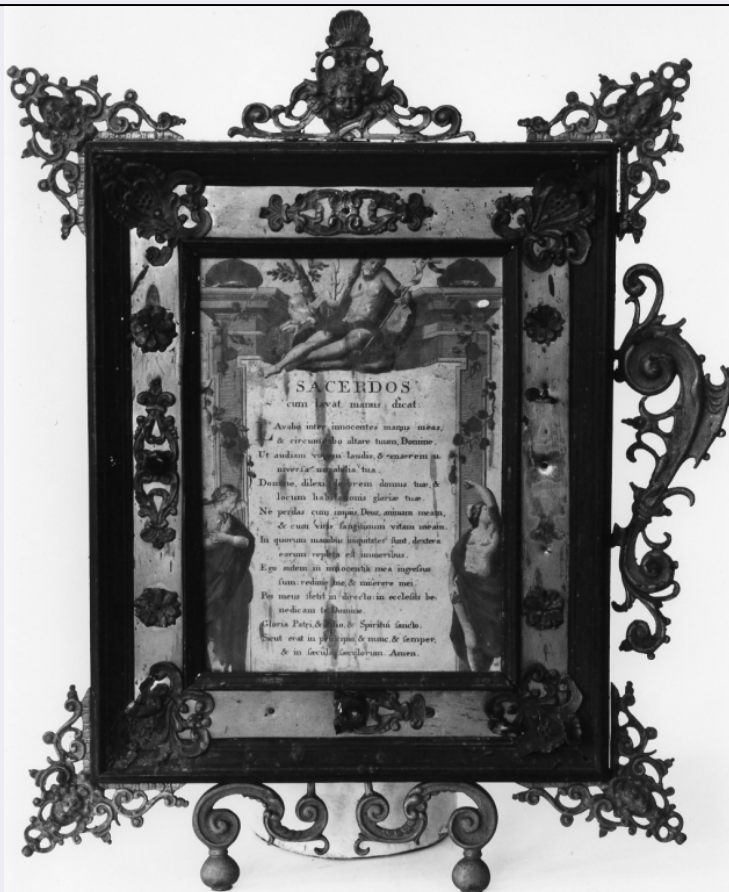 SACERDOS
cum lavat manus dicat:
Avabo inter innocentes manus meas,
& circumdabo altare tuum, Domine.
Ut audiam vocem laudis, & enarrem u-
niversa mirabilia tua.
Domine, dilexi decorem domus tuæ, &
locum habitationis gloriæ tuæ.
Ne perdas cum impiis Deus, animam meam,
& cum viris sanguinum vitam meam.
In quorum manibus iniquitates sunt, dextera
eorum repleta est muneribus.
Ego autem in innocentia mea ingressus
sum: redime me, & miserere mei.
Pes meus stetit in directo: in ecclesiis be-
nedicam te Domine.
Gloria Patri, & Filio, & Spiritui sancto.
Sicut erat in principio, & nunc, & semper,
& in sæcula sæculorum. Amen.